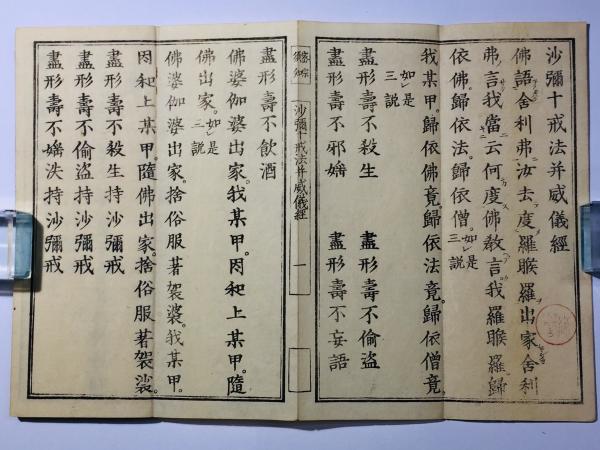 沙彌十戒法并威儀經
佛語舍利弗汝去度羅睺羅出家舍利
弗言我當云何度佛教言我羅睺羅歸
依佛歸依法歸依僧。如是三說
我某甲。歸依佛竟。歸依法竟。歸依僧竟。
如是三說
盡形壽不殺生 盡形壽不偷盜
盡形壽不邪婬 盡形壽不妄語
沙彌十戒法并威儀經 一
盡形壽不飲酒
佛婆伽婆出家。我某甲。因和上某甲。隨
佛出家。如是三說
佛婆伽婆出家。捨俗服著袈婆。我某甲。
因和上某甲。隨佛出家。捨俗服著袈裟。
盡形壽不殺生持沙彌戒
盡形壽不偷盜持沙彌戒
盡形壽不婬泆持沙彌戒